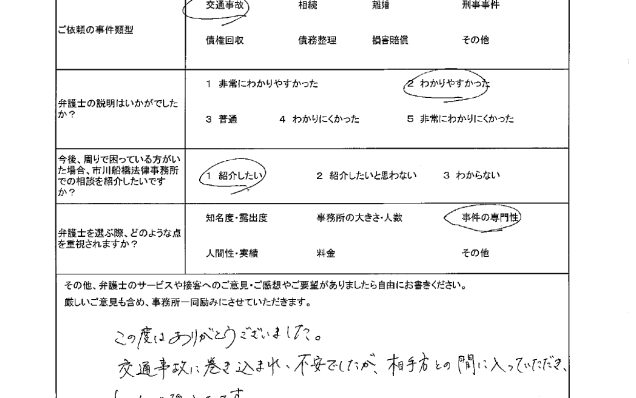 ご依頼の事件類型
交通事故 相続 離婚 刑事事件
債権回収 債務整理 損害賠償 その他
弁護士の説明はいかがでした
か?
1 非常にわかりやすかった 2 わかりやすかった
3 普通 4 わかりにくかった 5 非常にわかりにくかった
今後、周りで困っている方がい
た場合、市川船橋法律事務所
での相談を紹介したいです
か?
1 紹介したい 2 紹介したいと思わない 3 わからない
弁護士を選ぶ際、どのような点
を重視されますか?
知名度・露出度 事務所の大きさ・人数 事件の専門性
人間性・実績 料金 その他
その他、弁護士のサービスや接客へのご意見・ご感想やご要望がありましたら自由にお書きください。
厳しいご意見も含め、事務所一同励みにさせていただきます。
この度はありがとうございました。
交通事故に巻き込まれ、不安でしたが、相手方との間に入っていただき、